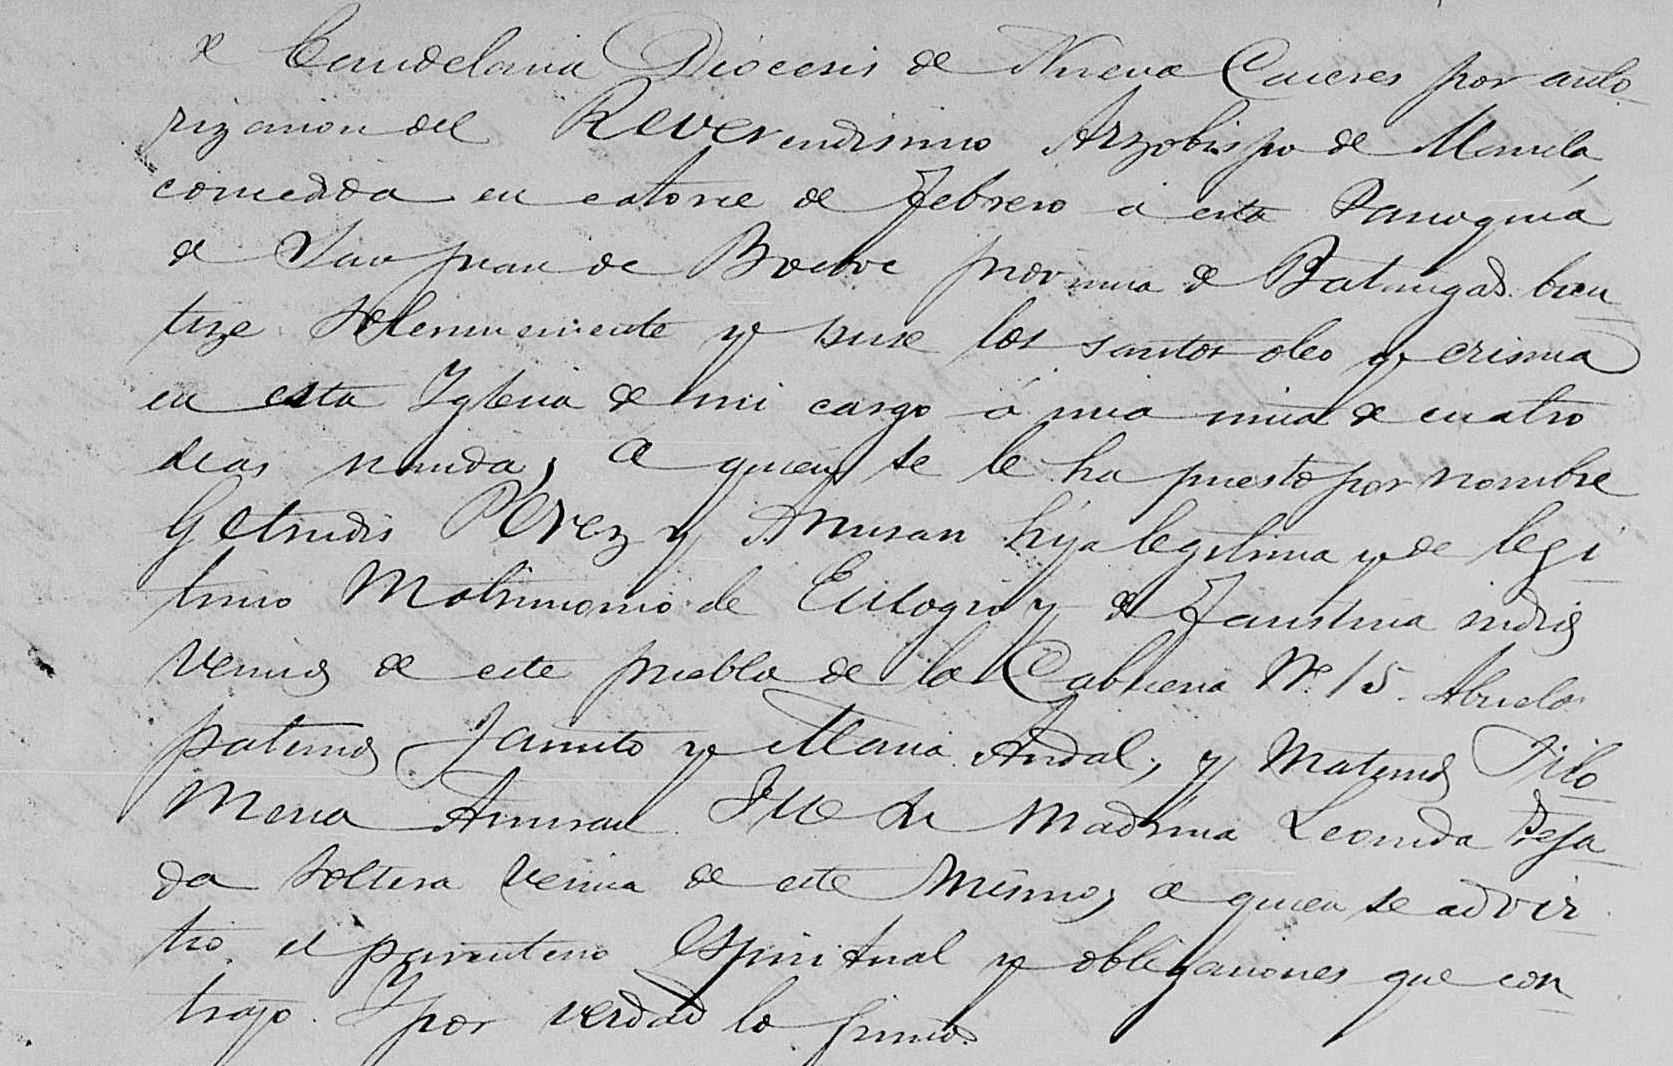 de Candelaria Diócesis de Nueva Caceres por auto-
rizacion del Reverendisimo Arzobispo de Manila,
concedida en catorce de Febrero á esta Parroquia
de San Juan de Bocboc provincia de Batangas bau-
tize solemnemente y puse los santos oleo y crisma
en esta Yglesia de mi cargo á una niña de cuatro
dias nacida, a quien se le ha puesto por nombre
Getrudis Perez y Anuran hija legitima y de legi-
timo Matrimonio de Eulogio y de Faustina indios
vecinos de este pueblo de la Cabeceria Nº 15. Abuelos
paternos Jacinto y Maria Andal, y Maternos Filo-
mena Anuran. Fue su Madrina Leonida Deja-
da soltera vecina de este Mismo, a quien se advir-
tio el parentesco espiritual y obligaciones que con-
trajo. Y por verdad lo firmo.